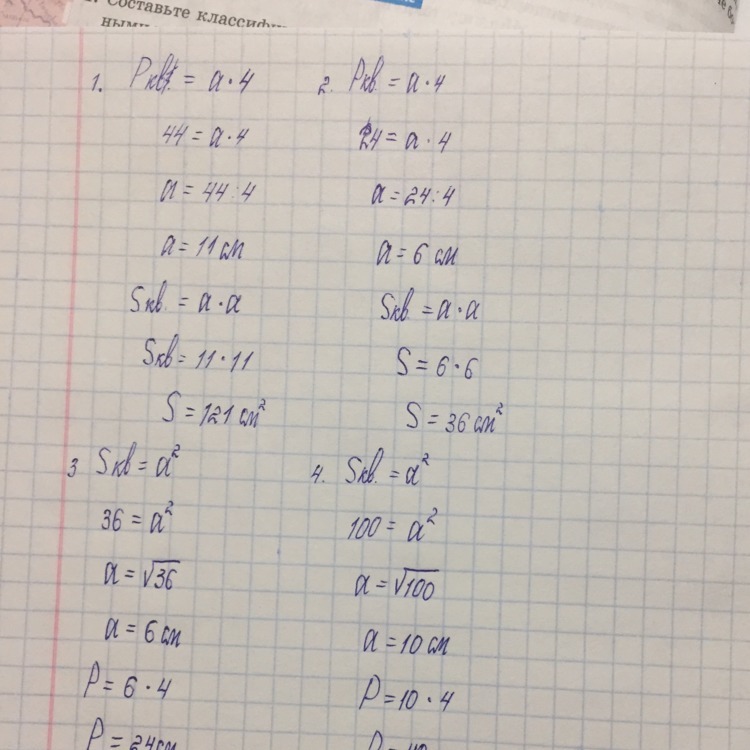 Составьте классифи
ными
1. Pкв. = a · 4
44 = a · 4
a = 44 : 4
a = 11 см
Sкв. = a · a
Sкв = 11 · 11
S = 121 см²
2. Pкв. = a · 4
24 = a · 4
a = 24 : 4
a = 6 см
Sкв. = a · a
S = 6 · 6
S = 36 см²
3 Sкв = a²
36 = a²
a = √36
a = 6 см
P = 6 · 4
P = 24 см
4. Sкв. = a²
100 = a²
a = √100
a = 10 см
P = 10 · 4